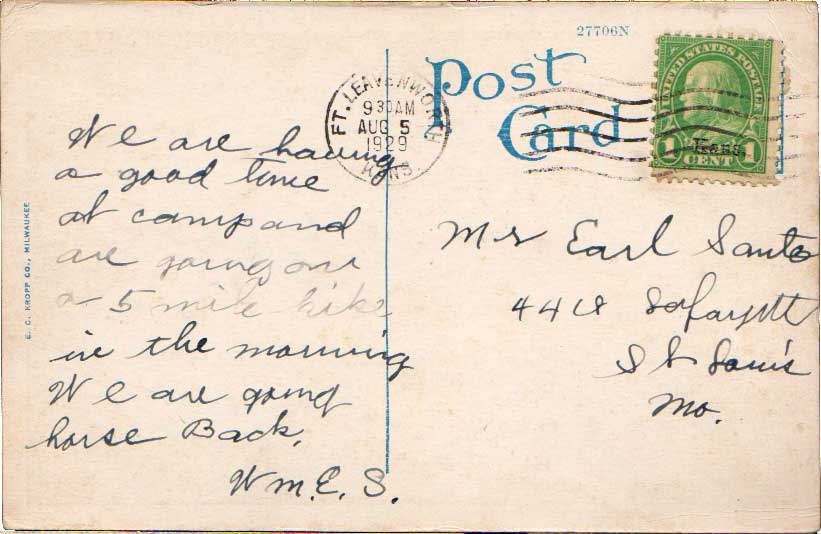 27706N
Post
Card
FT. LEAVENWORTH
9 30 AM
AUG 5
1929
KANS.
UNITED STATES POSTAGE
Kans.
1 CENT 1
We are having
a good time
at camp and
are going on
a 5 mile hike
in the morning
We are going
horse Back.
Wm. E. S.
Mr Earl Santo
Lafayett
St Louis
Mo.
E. C. KROPP CO., MILWAUKEE